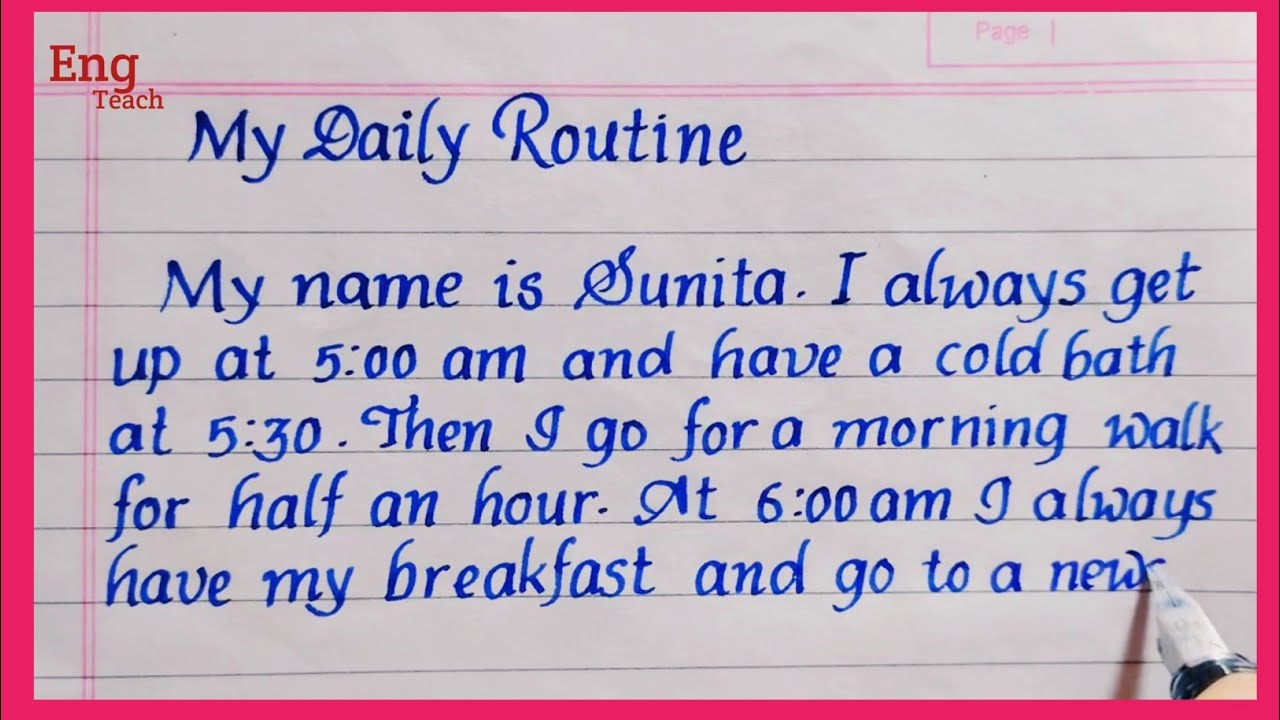 Eng
Teach
Page
My Daily Routine
My name is Sunita. I always get
up at 5:00 am and have a cold bath
at 5:30. Then I go for a morning walk
for half an hour. At 6:00 am I always
have my breakfast and go to a new